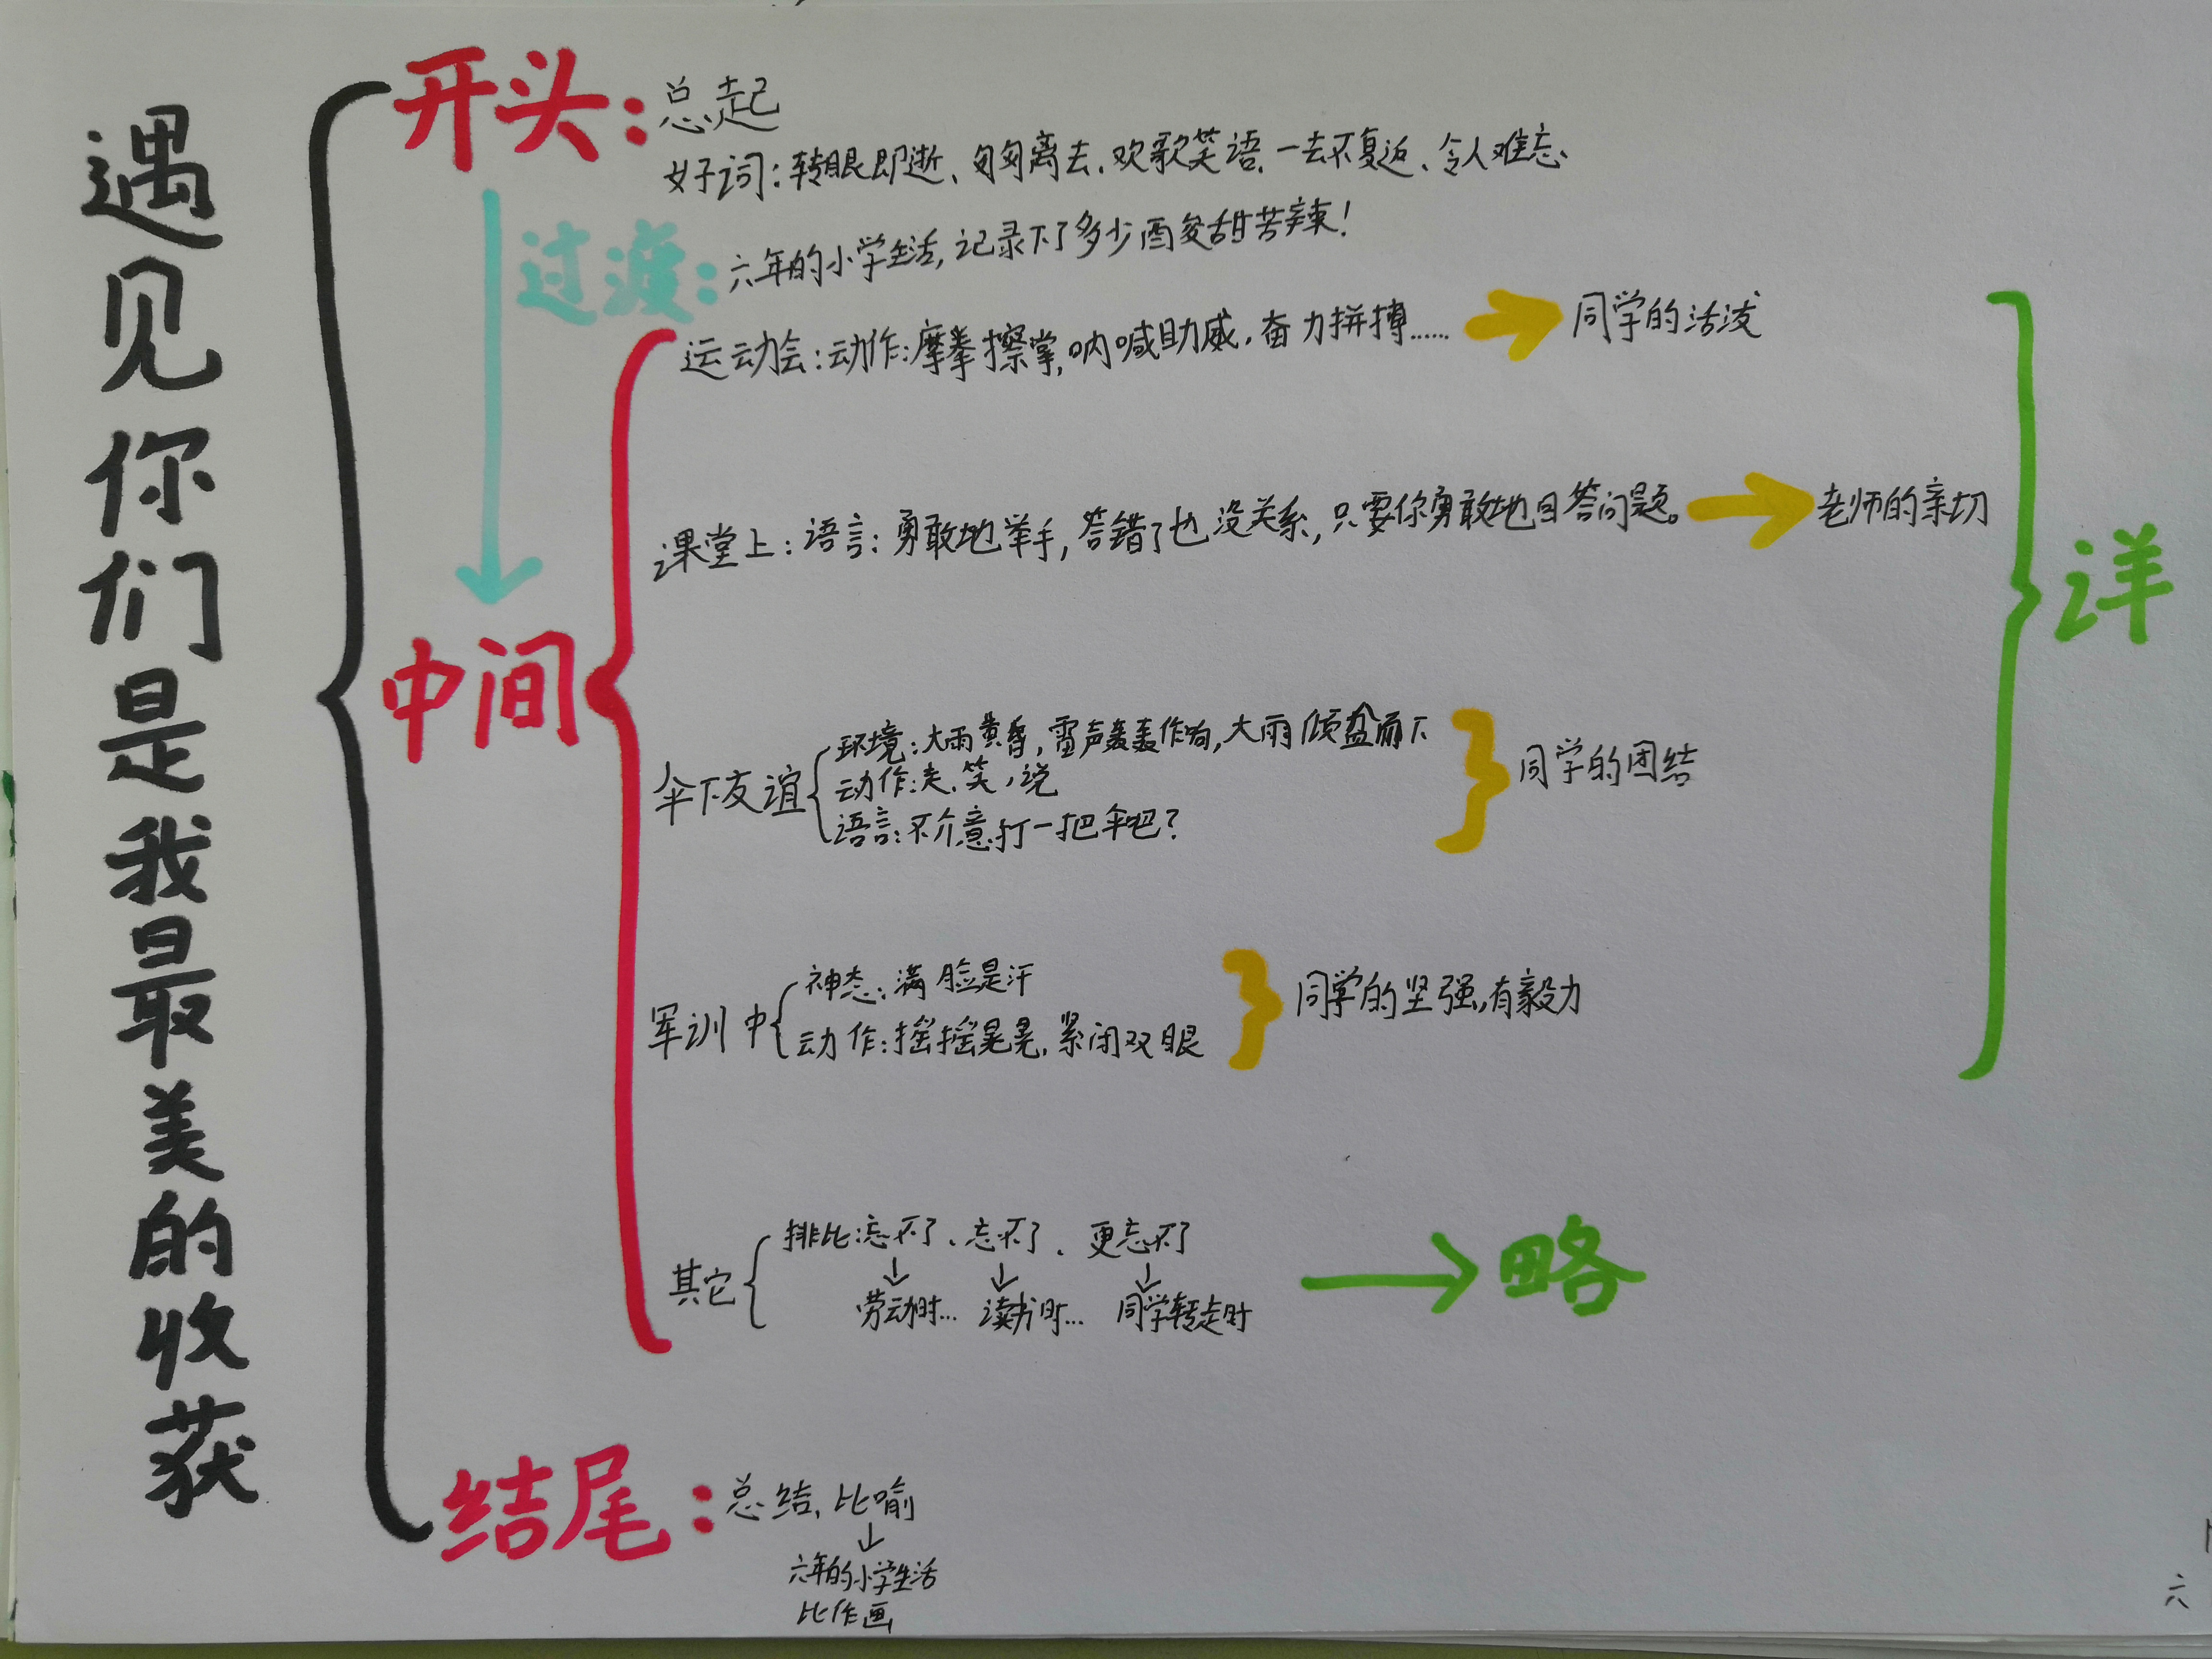 遇见你们是我最美的收获
开头：总起
好词：转眼即逝、匆匆离去、欢歌笑语、一去不复返、令人难忘
过渡：六年的小学生活，记录下了多少酉夋甜苦辣！
中间
运动会：动作：摩拳擦掌，呐喊助威，奋力拼搏…… 同学的活泼
课堂上：语言：勇敢地举手，答错了也没关系，只要你勇敢地回答问题。 老师的亲切
详
伞下友谊
环境：大雨黄昏，雷声轰轰作响，大雨倾盆而下
动作：走、笑，说
语言：不介意打一把伞吧？
同学的团结
军训中
神态：满脸是汗
动作：摇摇晃晃，紧闭双眼
同学的坚强，有毅力
其它
排比：忘不了、忘不了、更忘不了
劳动时… 读书时… 同学转走时
略
结尾：总结，比喻
六年的小学生活
比作画
六